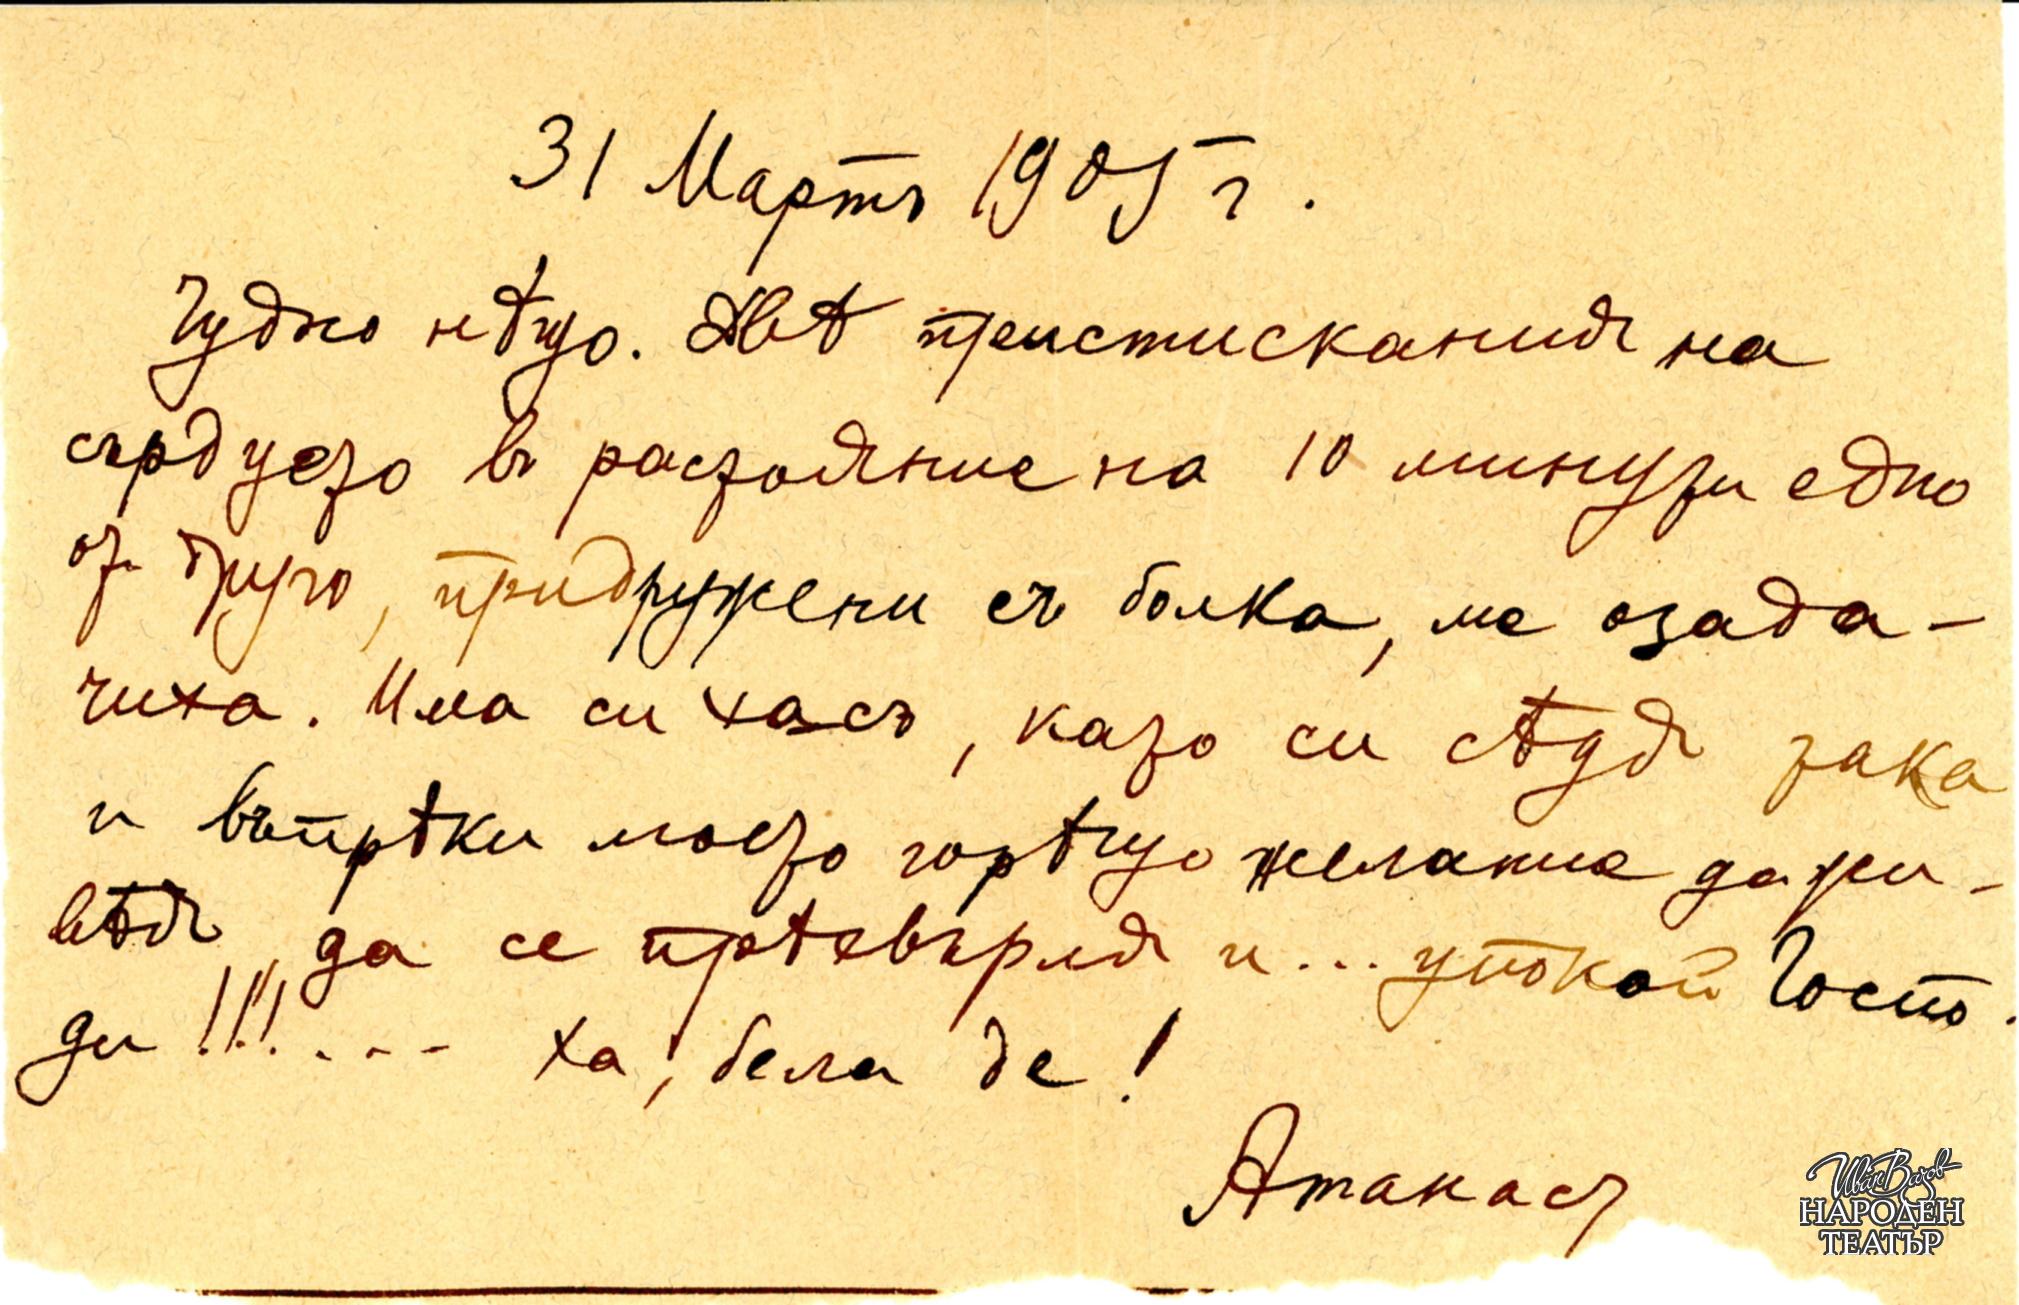 31 Мартъ 1905 г.
Чудно нѣщо. Двѣ преистискания на
сърдцето въ растояние на 10 минути едно
отъ друго, придружени съ болка, ме озада-
чиха. Има си хасъ, като си сѣдя така
и въпрѣки моето горѣщо желание да жи-
вѣя да се прѣхвърля и... упокой Госпо-
ди!!!.... Ха, бела де!
Атанасъ
Иван Вазов
НАРОДЕН
ТЕАТЪР